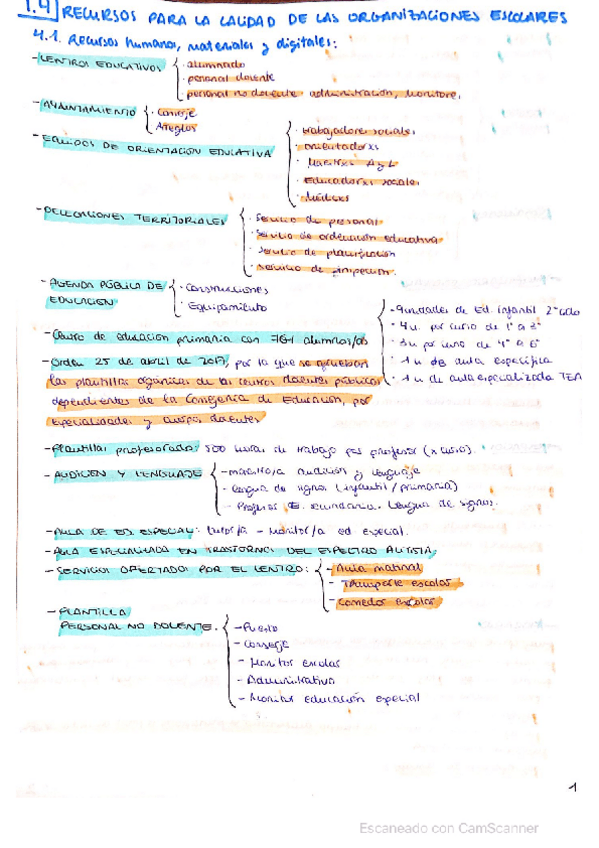 1.4 RECURSOS PARA LA CALIDAD DE LAS ORGANIZACIONES ESCOLARES
4.1. Recursos humanos, materiales y digitales:
- CENTROS EDUCATIVOS
· alumnado
· personal docente
· personal no docente: administración, monitores.
- AYUNTAMIENTO
· Conserje
· Arreglos
- EQUIPOS DE ORIENTACIÓN EDUCATIVA
· trabajadores sociales
· orientadorxs
· Maestrxs A y L
· Educadorxs sociales
· Médicxs
- DELEGACIONES TERRITORIALES
· Servicio de personal
· Servicio de ordenación educativa
· Servicio de planificación
· Servicio de inspección.
- AGENDA PÚBLICA DE EDUCACIÓN
· Construcciones
· Equipamiento
- Centro de educación primaria con 764 alumnos/as
- Orden 25 de abril de 2017, por la que se aprueban
las plantillas orgánicas de los centros docentes públicos
dependientes de la Consejería de Educación, por
especialidades y cuerpos docentes
- 9 unidades de Ed. infantil 2º ciclo
· 4 u. por curso de 1º a 3º
· 3 u por curso de 4º a 6º
· 1 u de aula específica
· 1 u de aula especializada TEA
- Plantillas profesorado: 500 horas de trabajo por profesor (x curso).
- AUDICIÓN Y LENGUAJE
- maestro/a audición y lenguaje
- lengua de signos (infantil / primaria)
- Profesor E. secundaria. Lengua de signos.
- AULA DE ED. ESPECIAL: tutor/a - monitor/a ed especial.
- AULA ESPECIALIZADA EN TRASTORNOS DEL ESPECTRO AUTISTA
- SERVICIOS OFERTADOS POR EL CENTRO:
- Aula matinal
- Transporte escolar
- Comedor escolar
- PLANTILLA
PERSONAL NO DOCENTE.
- Puesto
- Conserje
- Monitor escolar
- Administrativo
- Monitor educación especial
1
Escaneado con CamScanner